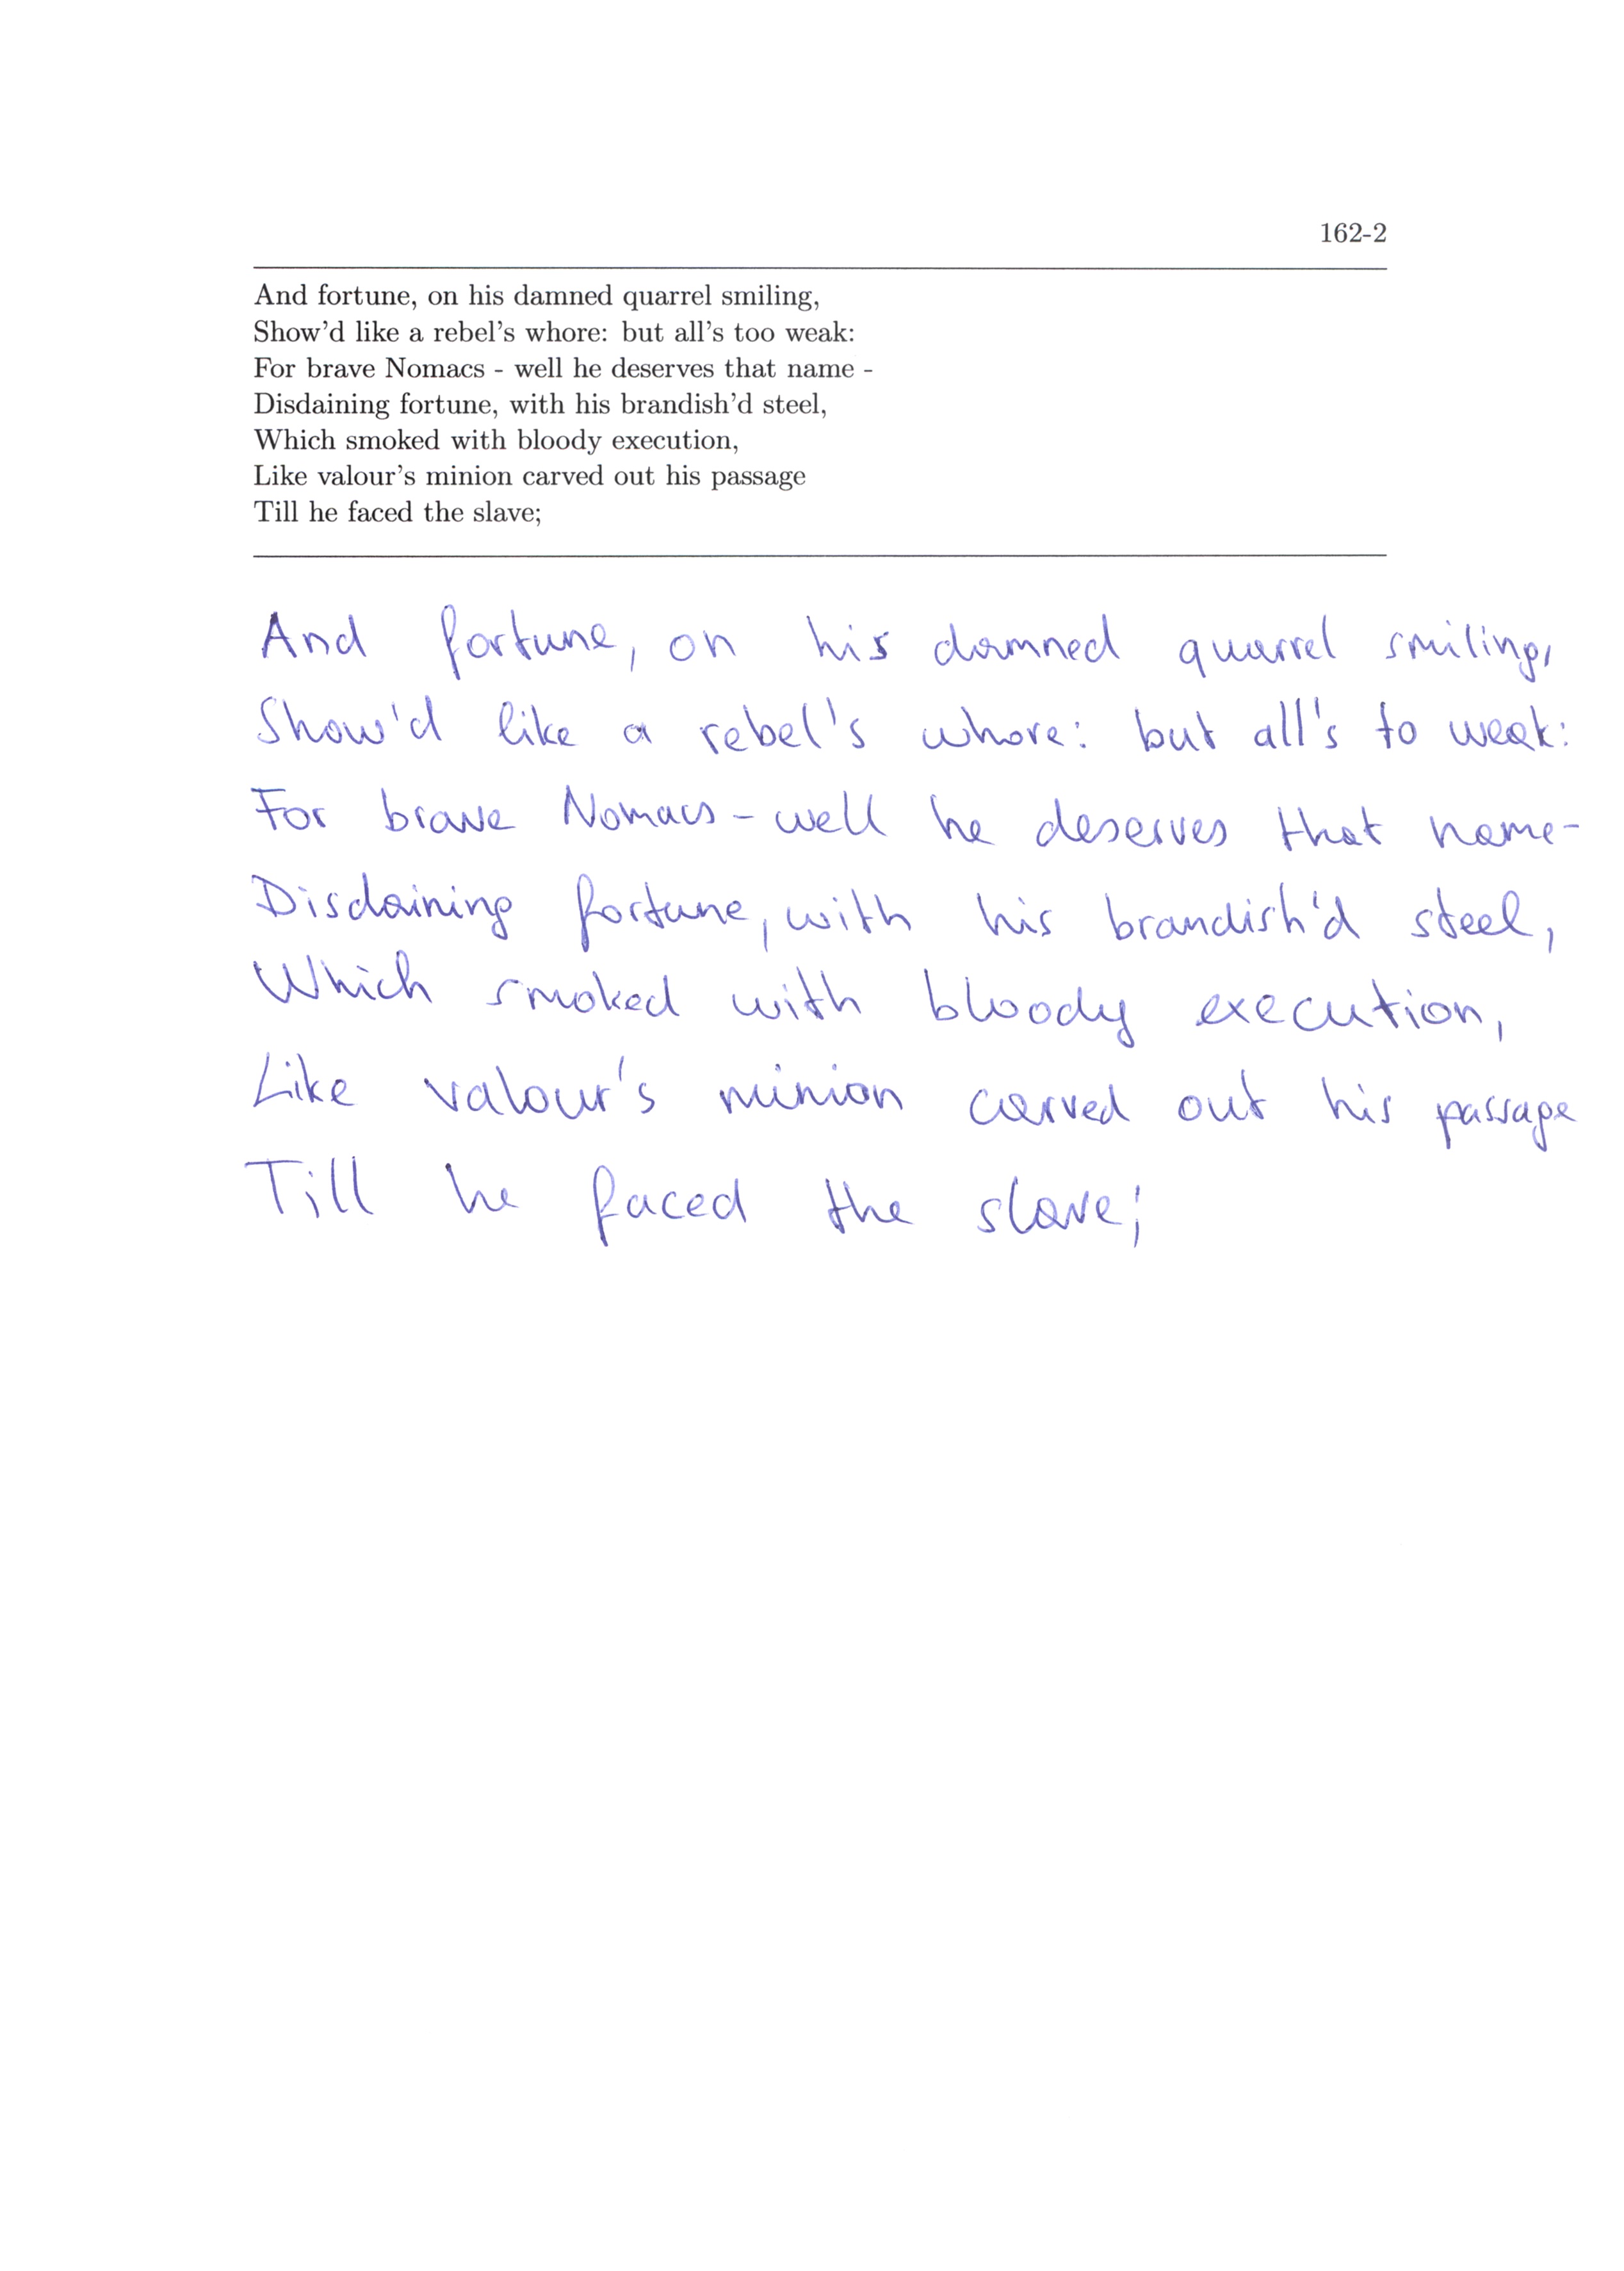 162-2
And fortune, on his damned quarrel smiling,
Show'd like a rebel's whore: but all's too weak:
For brave Nomacs - well he deserves that name -
Disdaining fortune, with his brandish'd steel,
Which smoked with bloody execution,
Like valour's minion carved out his passage
Till he faced the slave;
And fortune, on his damned quarrel smiling,
Show'd like a rebel's whore: but all's to weak:
For brave Nomacs - well he deserves that name -
Disdaining fortune, with his brandish'd steel,
Which smoked with bloody execution,
Like valour's minion carved out his passage
Till he faced the slave;